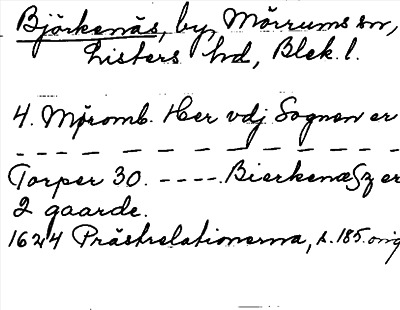 Björkenäs, by, Mörrums sn,
Listers hd, Blek. l.
4. Möromb. Her vdj Sognen er
- - - - - - - - - - - - - -
Torper 30. - - - - . Bierkenæsz er
2 gaarde.
1624 Prästrelationerna, s. 185. orig